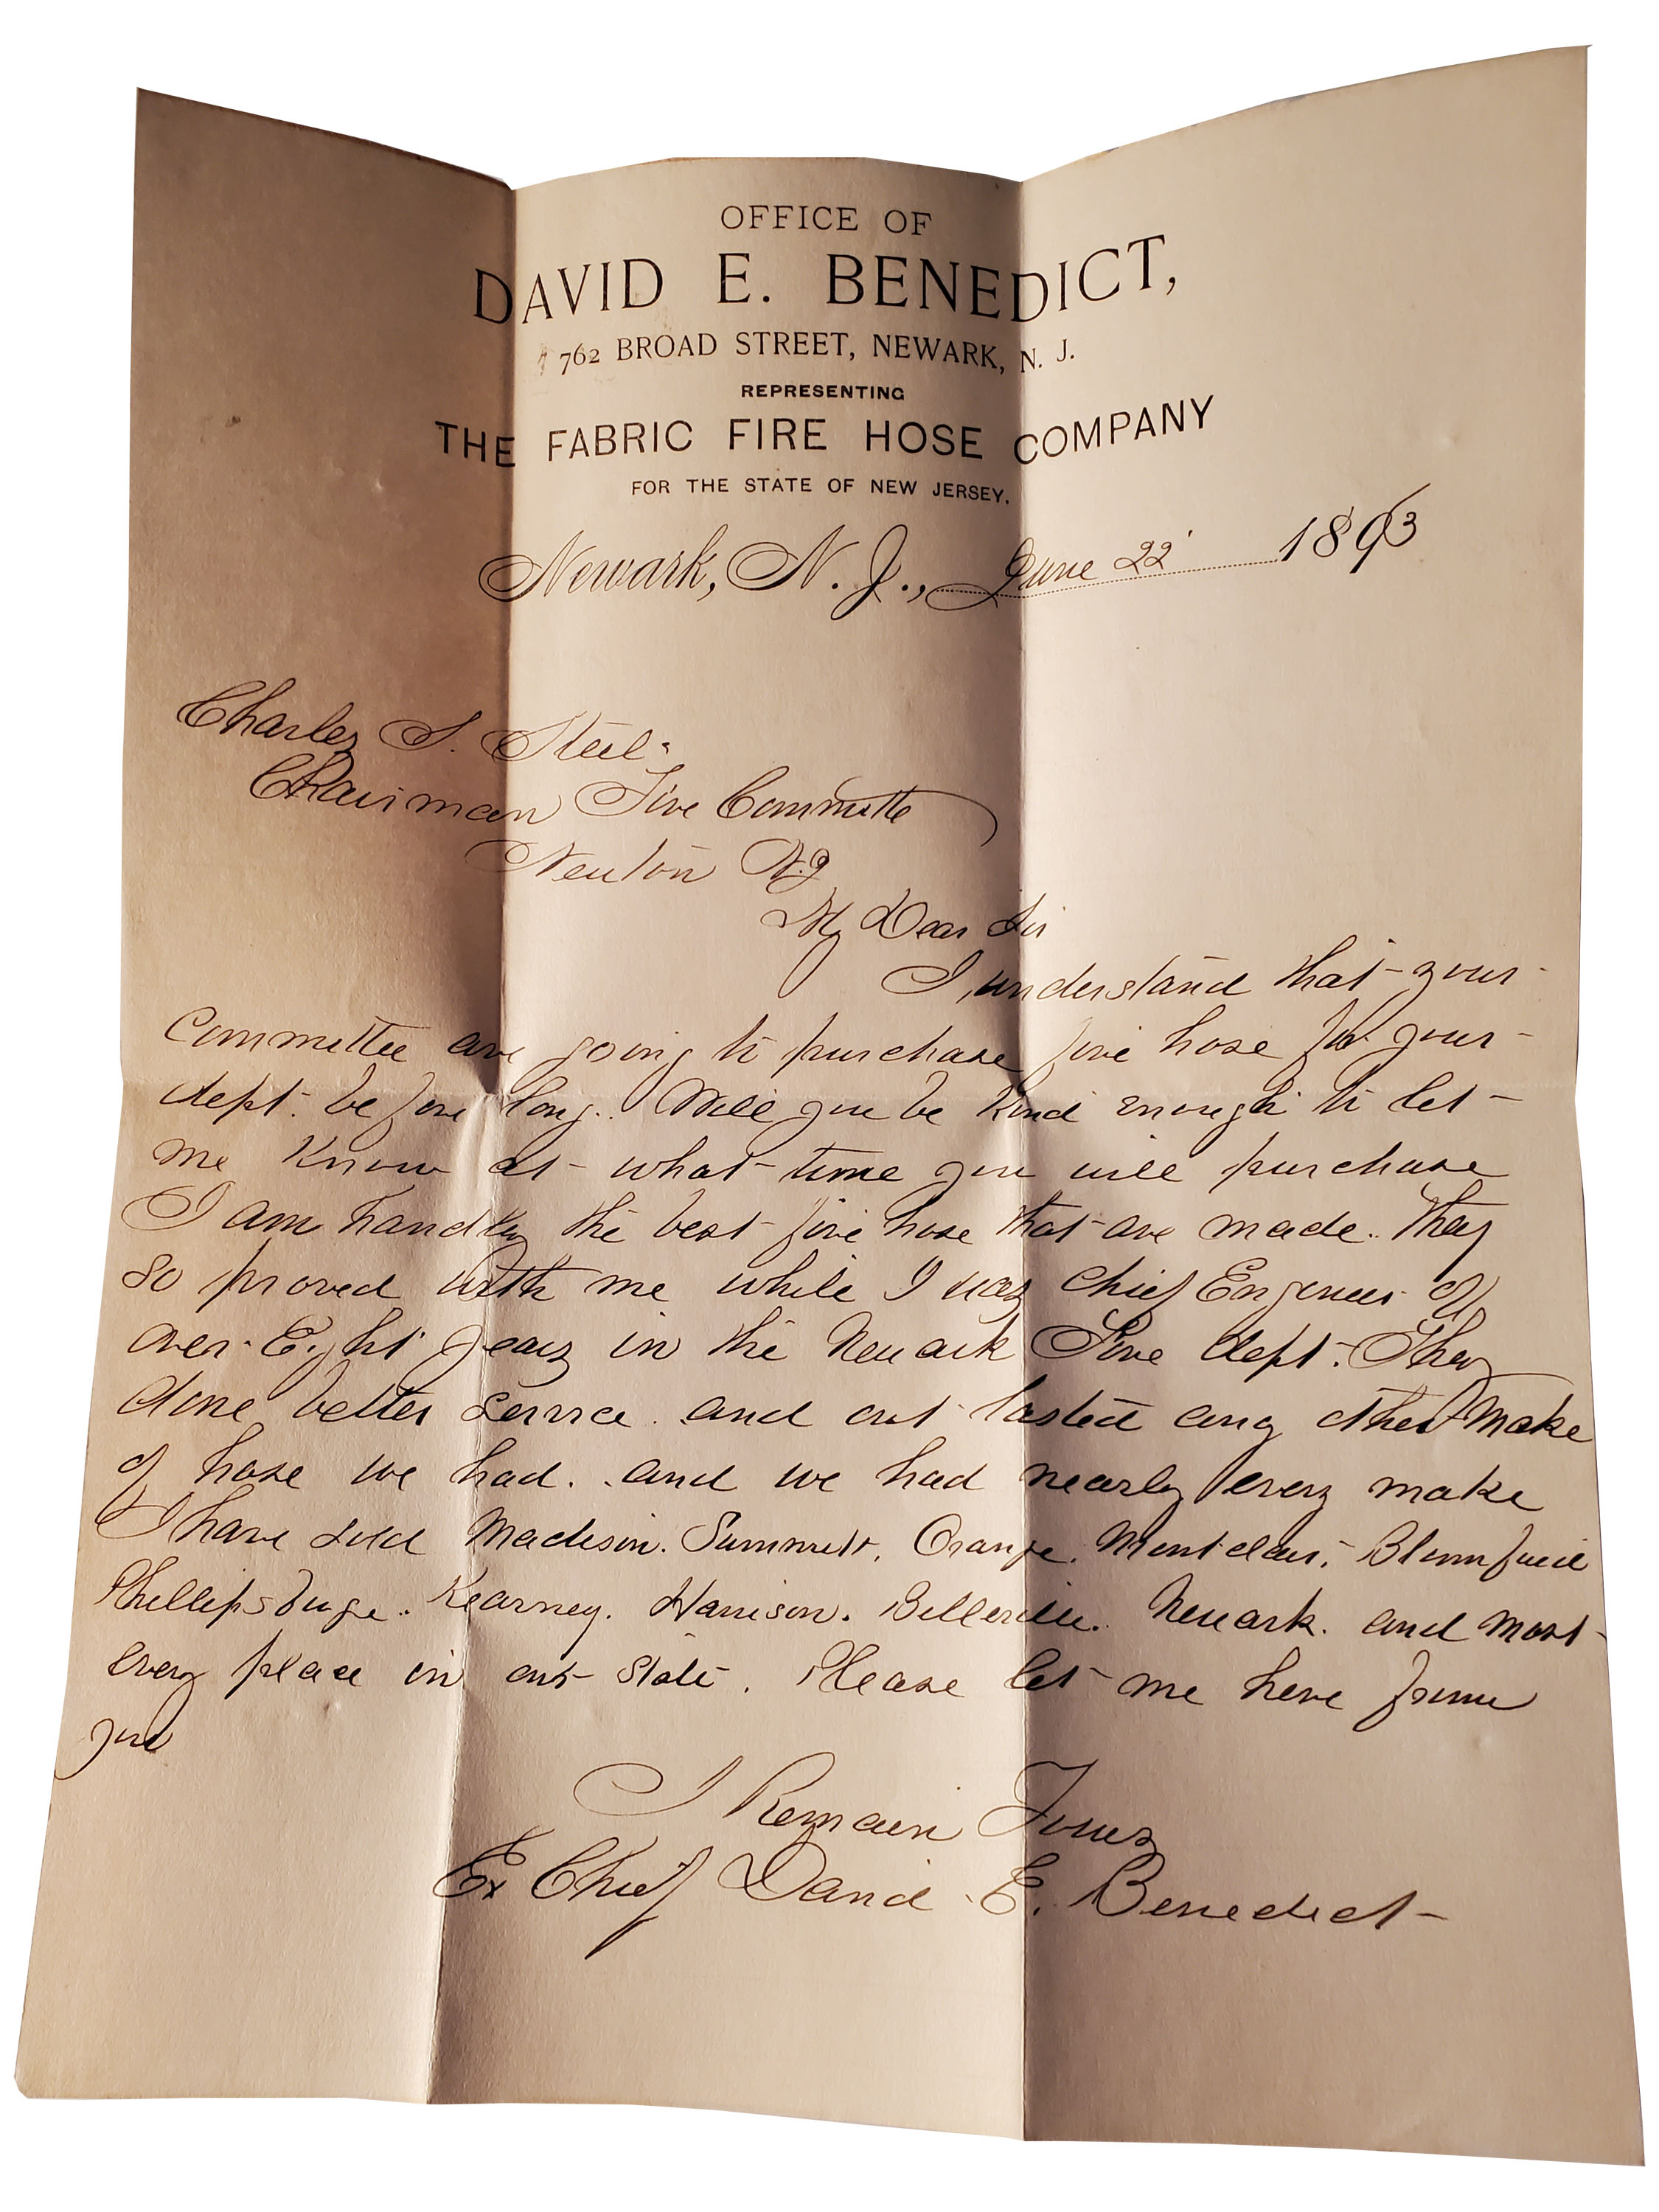 OFFICE OF
DAVID E. BENEDICT,
762 BROAD STREET, NEWARK, N. J.
REPRESENTING
THE FABRIC FIRE HOSE COMPANY
FOR THE STATE OF NEW JERSEY.
Newark, N. J., June 22 1893
Charles S. Steel
Chairman Fire Committe
Newton N.J
My Dear Sir
I understand that your
Committee are going to purchase fire hose for your
dept. before long. Will you be kind enough to let
me know at what time you will purchase
I am handling the best fire hose that are made. they
so proved with me while I was chief Engineer of
over Eight years in the Newark Fire dept. They
done better service and out lasted any other make
of hose we had. and we had nearly every make
I have sold Madison. Summitt. Orange. Montclair. Bloomfield
Phillipsburge. Kearney. Harrison. Belleville. Newark. and most
every place in our state. Please let me here from
you
I Remain Yours
Ex Chief David E. Benedict